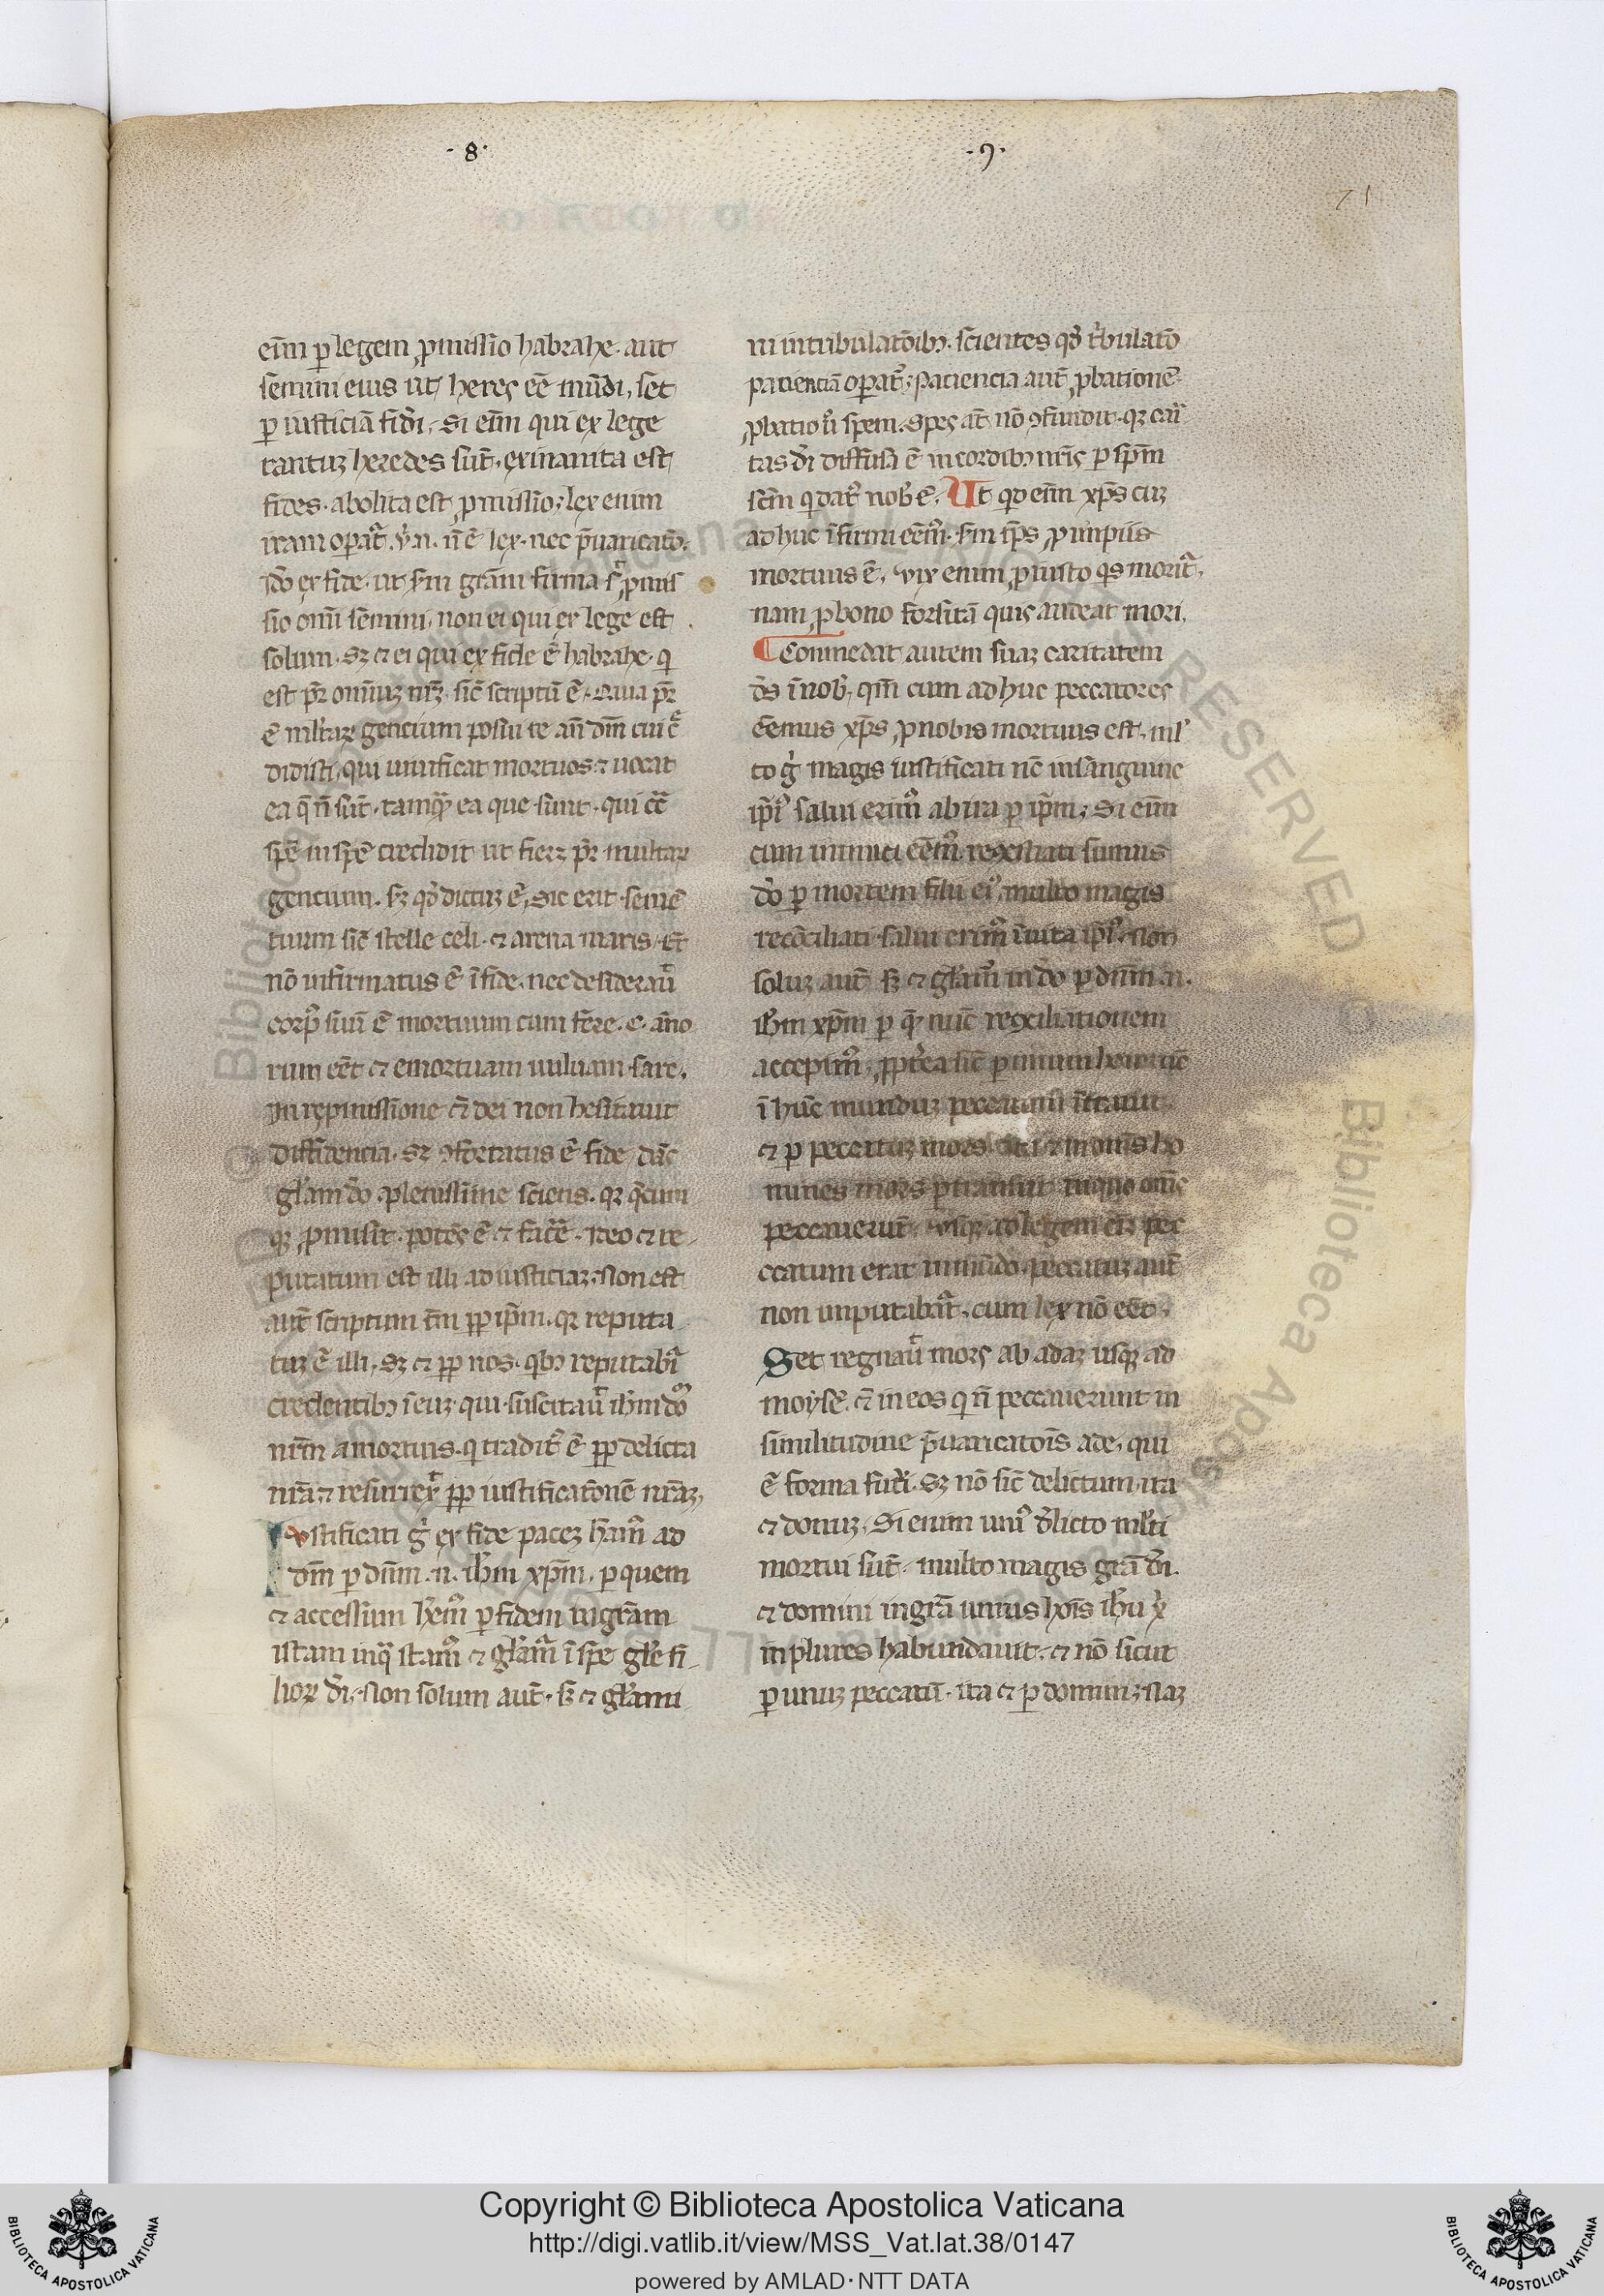 ·8·
·9·
71
eni̅m p̲ legem ꝓmissio habrahe. aut
semini eius ut heres ee̅ mu̅di, set
p̲ iusticia̅ fidei. Si eni̅m qui ex lege
tantuꝫ heredes su̅t. exinanita est
fides. abolita est ꝓmissio; lex enim
iram op̲at᷑. v. n. n̅ e̅ lex. nec p̅uaricato̅.
Ido̅ ex fide. ut s̅m gra̅m firma s᷑ ꝓmis
sio om̅i semini, non ei qui ex lege est
solum. sꝫ ⁊ ei qui ex fide e̅ habrahe. q̇
est pr̅ omniuꝫ nr̅ꝫ. sic̅ scriptu̅ e̅. Quia pr̅
e̅ ml̅taꝝ gencium posui te an̅ dm̅ cui c᷑
didisti, qui uiuificat mortuos ⁊ uocat
ea q̅ n̅ su̅t. tamqꝫ ea que sunt. qui cc̅
spe̅ in spe̅ credidit ut fieꝫ pr̅ multaꝝ
gencium. s̅ꝫ qd̓ dictuꝫ e̅, Sic erit seme̅
tuum sic̅ stelle celi. ⁊ arena maris. Et
no̅ infirmatus e̅ i̅ fide. nec desiderau᷑
corpꝰ suu̅ e̅ mortuum cum fere. c. an̅o
rum ee̅t ⁊ emortuam uuluam sare.
In repmissione e̅t dei non hesitauit
diffidencia. sꝫ ꝯfortatus e̅ fide da̅s
gl̅am do̅ plenissime sciens. qꝝ q̅cum
qꝫ ꝓmisit. pote̅s e̅ ⁊ face̅. Ideo ⁊ re
putatum est illi ad iusticiaꝫ. Non est
aut̅ scriptum tm̅ ꝓp ip̅m. qꝝ reputa
tuꝫ e̅ illi. sꝫ ⁊ ꝓp nos. qꝫ reputabi᷑
credentibꝫ i̅ euꝫ qui suscitau᷑ ih̅m do̅
nr̅m a mortuis. q̇ tradit᷑ e̅ ꝓp delicta
nr̅a ⁊ resurrex᷑ ꝓp iustificato̅ne̅ nr̅aꝫ,
Iustificati g̓ ex fide paceꝫ ha̅mꝰ ad
dm̅ p̲ dn̅m .n. ih̅m xp̅m. p̲ quem
⁊ accessum he̅mꝰ p̲ fidem in gra̅m
istam in qa̅ stamꝰ ⁊ gl̅amꝰ i̅ spe gl̅e fi
lioꝝ di̅. Non solum aut̅. s̅ꝫ ⁊ gl̅amu
ni in tribulato̅ibꝫ. scientes qd̓ tbulato̅
patientia̅ op̲at᷑; paciencia aut̅ ꝓbatione̅
ꝓbatio u̓ spem. Spes at̅ no̅ ꝯfundit. qꝝ cari
tas di̅ diffusa e̅ in cordibꝫ nr̅is p̲ spm̅
sc̅m q̇ dat᷑ nob̅ e̅. Ut qd eni̅m xp̅s cuꝫ
adhuc i̅firmi ee̅mꝰ. s̅m tp̅s ꝓ impiis
mortuus e̅. Vix enim ꝓ iusto qs morit᷑.
nam ꝓ bono forsita̅ quis audeat mori.
¶ Co̅me̅dat autem suaꝫ caritatem
ds̅ i̅ nob̅, qm̅ cum adhuc peccatores
ee̅mus xp̅s ꝓ nobis mortuus est. ml̓
to g̓ magis iustificati nc̅ in sanguine
ip̅iꝰ salui erimꝰ ab ira p̲ ip̅m; Si eni̅
cum inimici ee̅mꝰ. reꝯsiliati sumus
do̅ p̲ mortem filii eiꝰ multo magis
reconciliati salui erimꝰ i̅ uita ip̅iꝰ. Non
soluꝫ aut̅ s̅ꝫ ⁊ gl̅amꝰ in do̅ p̲ dn̅m .n.
ih̅m xp̅m p̲ que̅ nu̅c reꝯciliationem
accepimꝰ, ꝓpt̓ea sic̅ p̲ unum homine̅
i̅ hu̅c munduꝫ peccatum i̅trauit
⁊ p̲ peccatuꝫ mors. ita ⁊ in om̅s ho
mines mors p̲transiit in quo om̅s
peccauerunt. usqꝫ ad legem eni̅ pec
ccatum erat in mu̅do. peccatuꝫ aut̅
non imputabat᷑. cum lex no̅ ee̅t.
Set regnau᷑ mors ab adaꝫ usqꝫ ad
moyse̅. e̅t in eos q̇ n̅ peccauerunt in
similitudine p̅uaricato̅is ade, qui
e̅ forma futi᷑. sꝫ no̅ sic̅ delictum ita
⁊ donuꝫ. Si enim uniꝰ d̓licto ml̅ti
mortui su̅t. multo magis gra̅ di̅.
⁊ domini in gra̅ unius hoi̅s ih̅u x̅
in plures habundauit. ⁊ no̅ sicut
p̲ unuꝫ peccatu̅. ita ⁊ p̲ dominuꝫ; Naꝫ
Copyright © Biblioteca Apostolica Vaticana
http://digi.vatlib.it/view/MSS_Vat.lat.38/0147
powered by AMLAD·NTT DATA